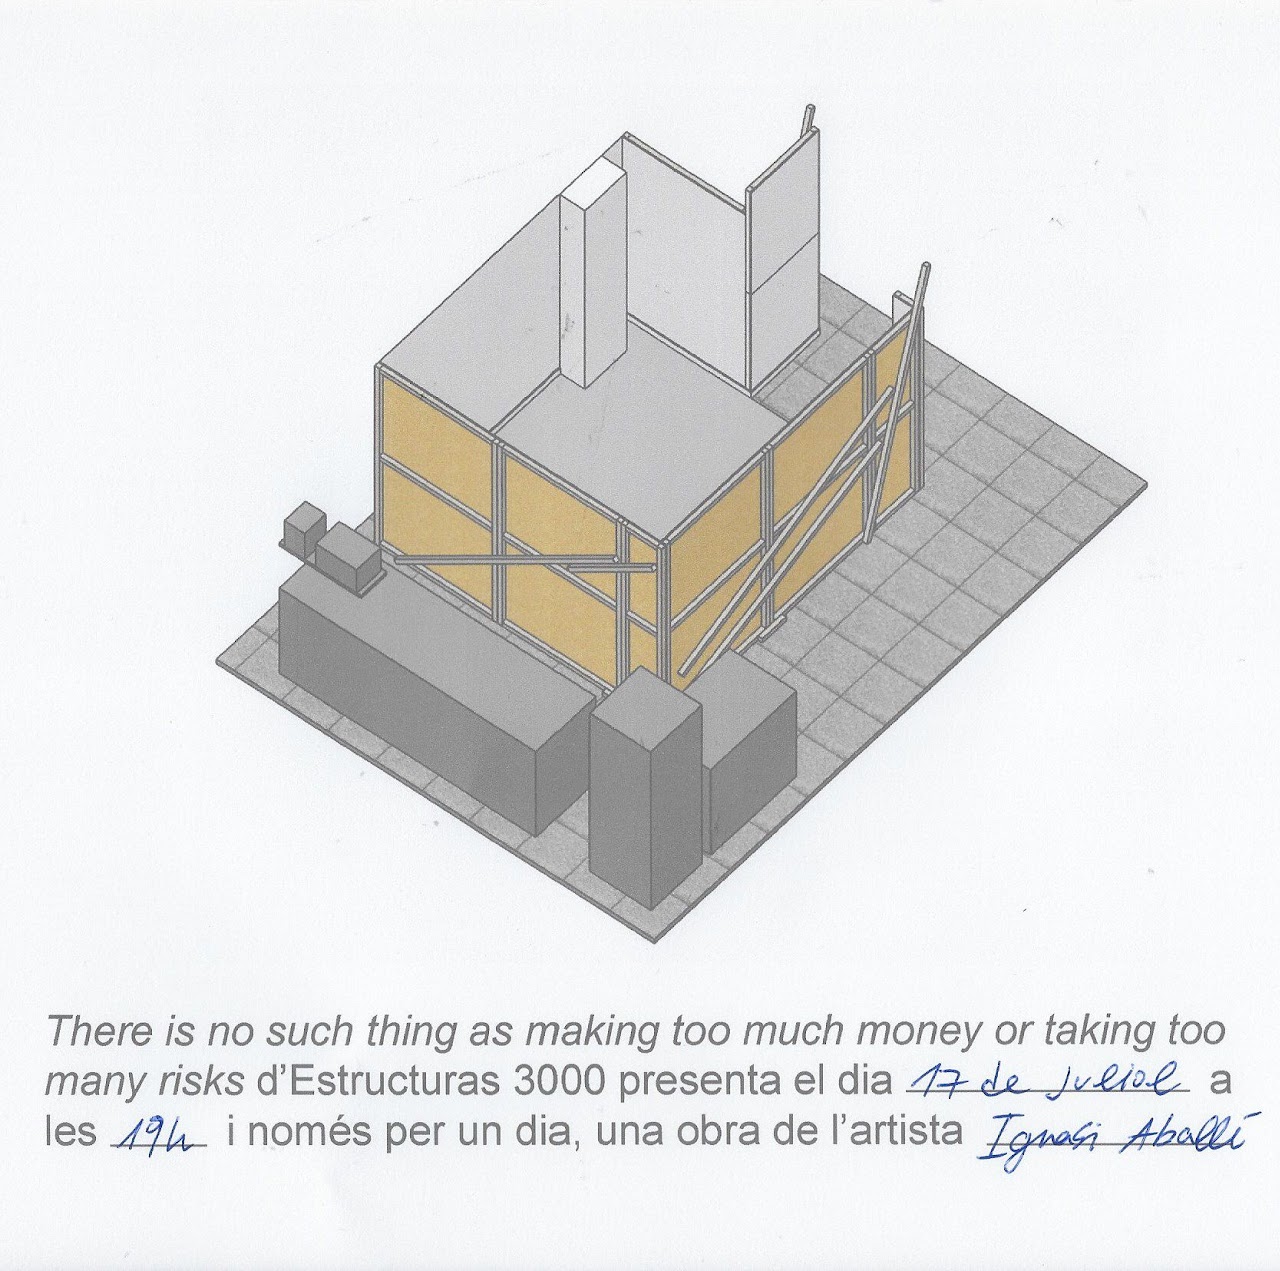 There is no such thing as making too much money or taking too
many risks d’Estructuras 3000 presenta el dia 17 de juliol a
les 19h i només per un dia, una obra de l’artista Ignasi Aballí